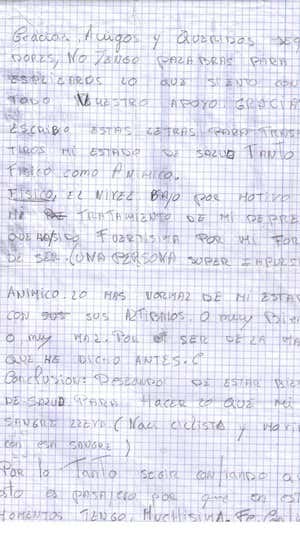 Gracias Amigos y Queridos seg
DORES, NO TENGO PALABRAS PARA
EXPLICAROS LO QUE SIENTO CON
TODO VUESTRO APOYO. GRACIA
ESCRIBO ESTAS LETRAS PARA TRAS
TIROS MI ESTADO DE SALUD TANTO
FISICO COMO ANIMICO.
FISICO, EL NIVEL BAJO POR MOTIVO
TRATAMIENTO DE MI DEPRE
QUE HA SIDO FUERTISIMA POR MI FOR
DE SER. (UNA PERSONA SUPER IMPULSI
ANIMICO. LO MAS NORMAL DE MI ESTA
CON SUS ALTIBAJOS. O MUY BIEN
O MUY MAL. POR SER DE LA MA
QUE HE DICHO ANTES. (
Conclusion: DESEANDO DE ESTAR BIE
DE SALUD PARA HACER LO QUE MI
SANGRE LLEVA (NACI CICLISTA Y MORI
CON ESA SANGRE)
POR lo TANTO SEGIR CONFIANDO
sto es PASAJERO POR QUE EN ES
MOMENTOS TENGO, MUCHISIMA. Fe.